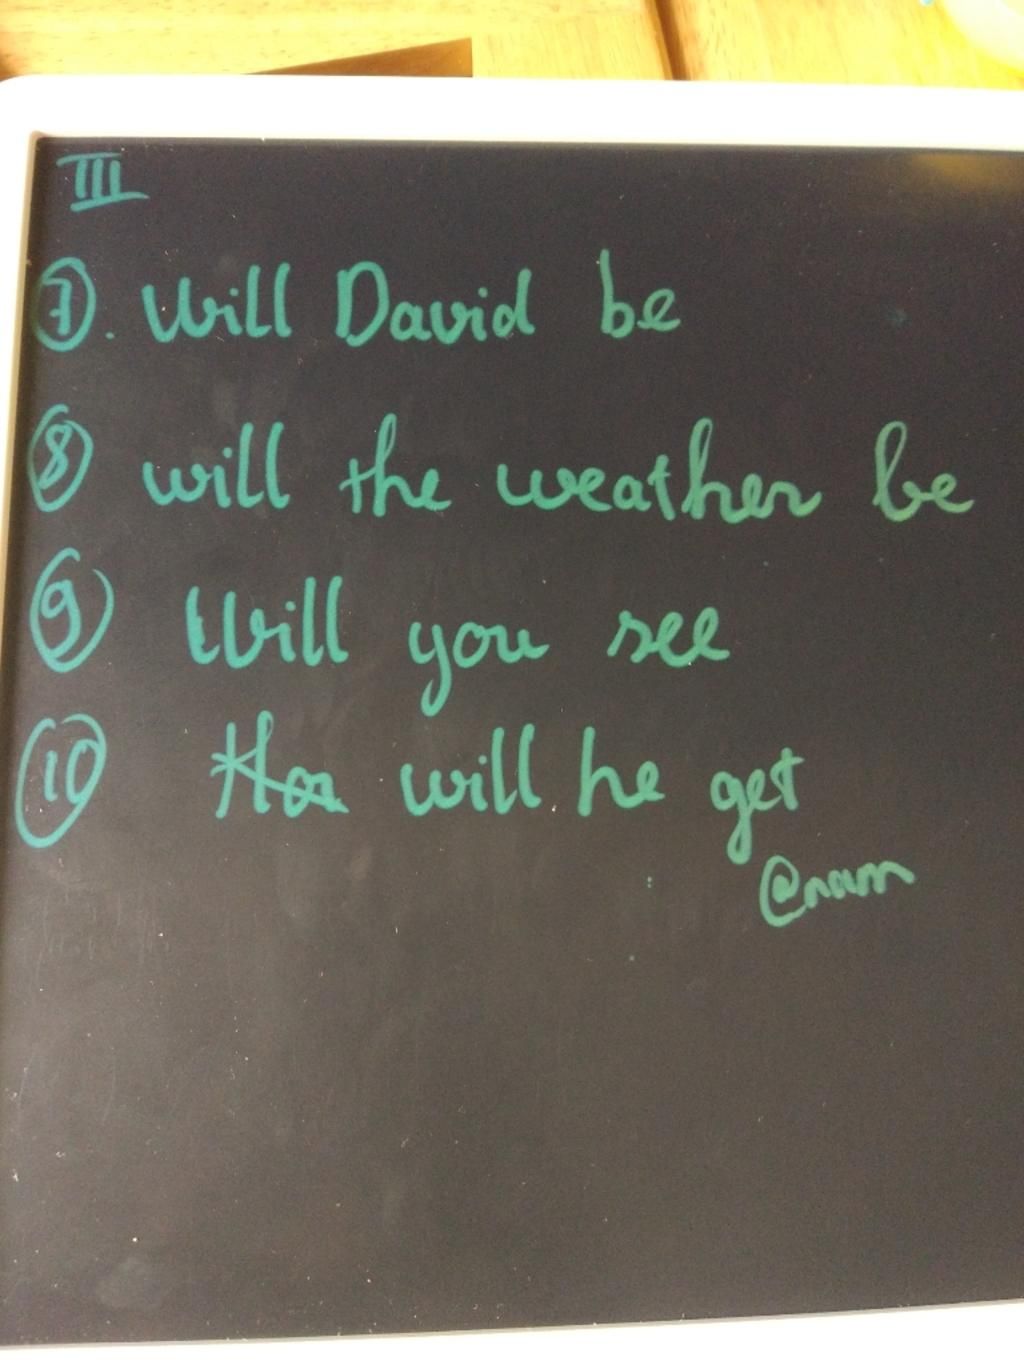 III
7. Will David be
8 will the weather be
9 Will you see
10 will he get
@nam